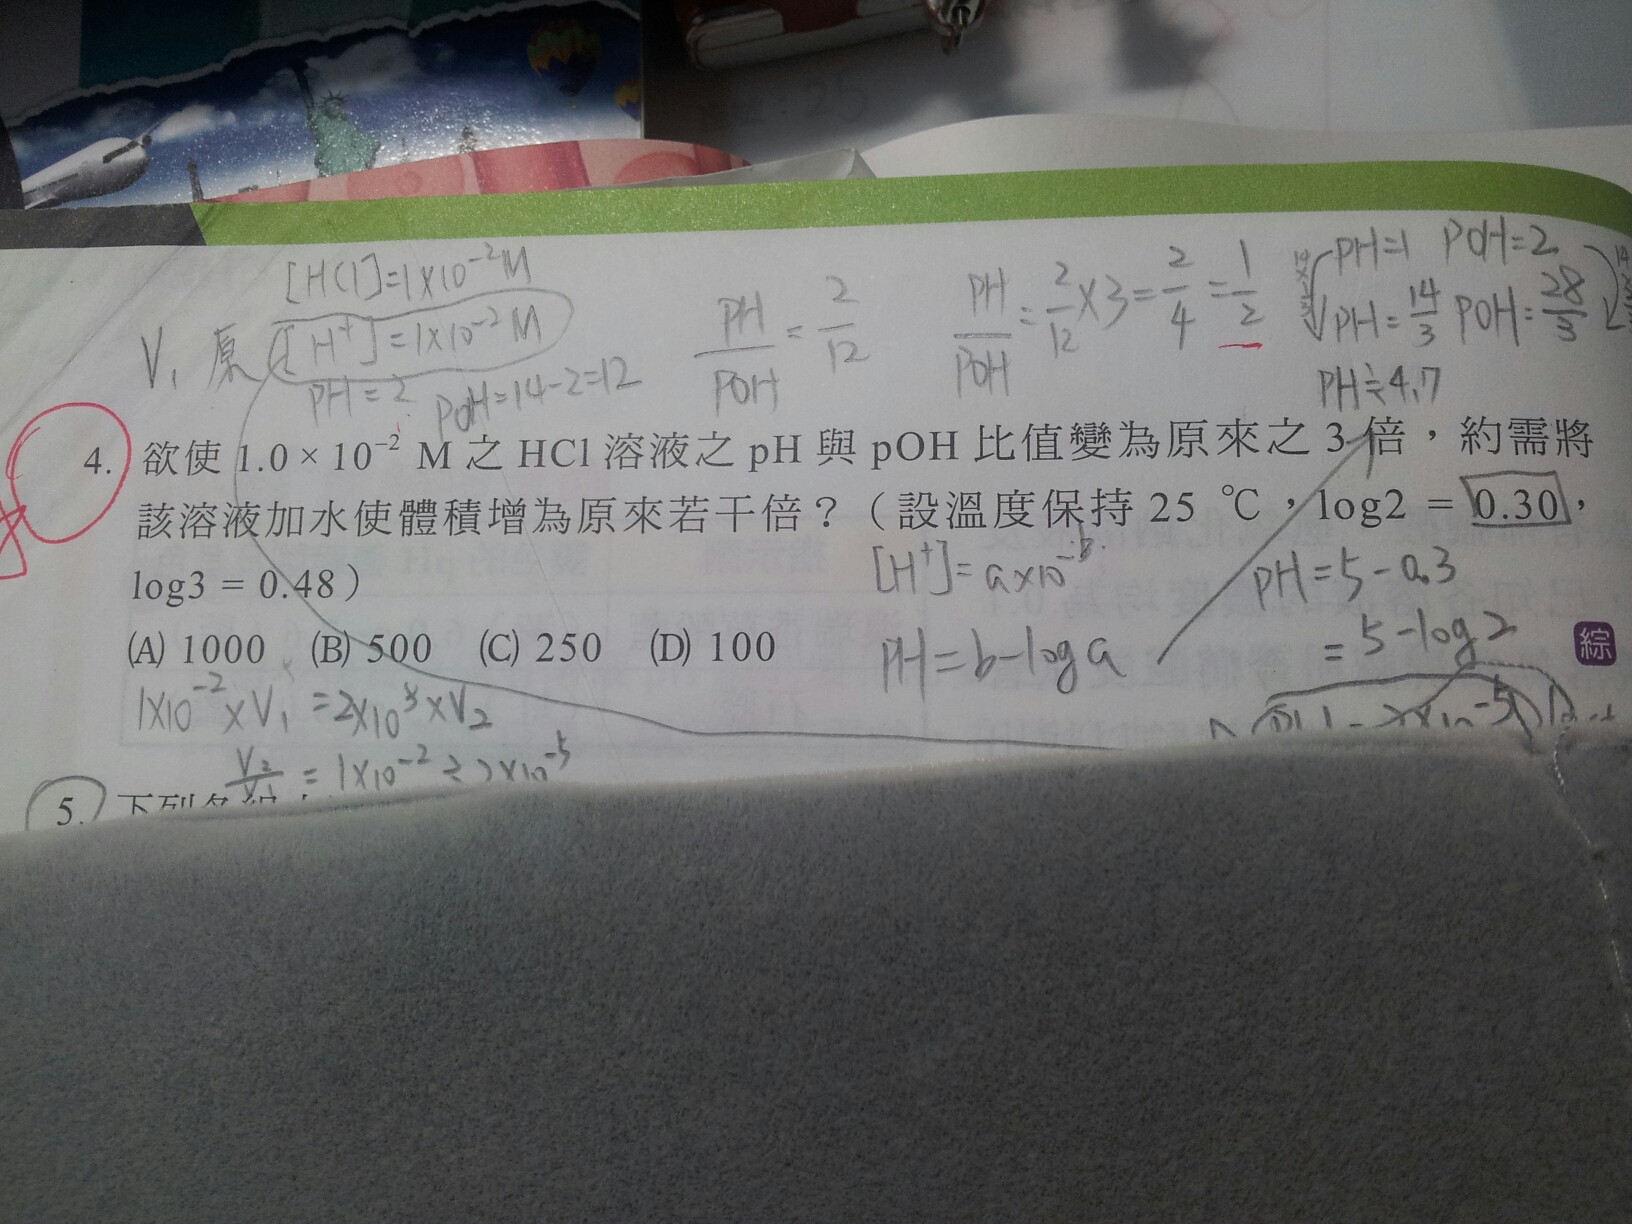 [HCl]=1×10⁻²M
V₁ 原 [H⁺]=1×10⁻²M
PH=2 POH=14-2=12
PH/POH = 2/12
PH/POH = 2/12 ×3 = 2/4 = 1/2
PH=1 POH=2
PH=14/3 POH=28/3
PH≒4.7
4. 欲使 1.0 × 10⁻² M 之 HCl 溶液之 pH 與 pOH 比值變為原來之 3 倍，約需將
該溶液加水使體積增為原來若干倍？（設溫度保持 25 ℃，log2 = 0.30，
log3 = 0.48）
[H⁺]=a×10⁻ᵇ
PH=5-0.3
(A) 1000 (B) 500 (C) 250 (D) 100
PH=b-loga
=5-log2
綜
1×10⁻²×V₁=2×10 ×V₂
=1×10⁻²÷2×10⁻⁵
5. 下列各組